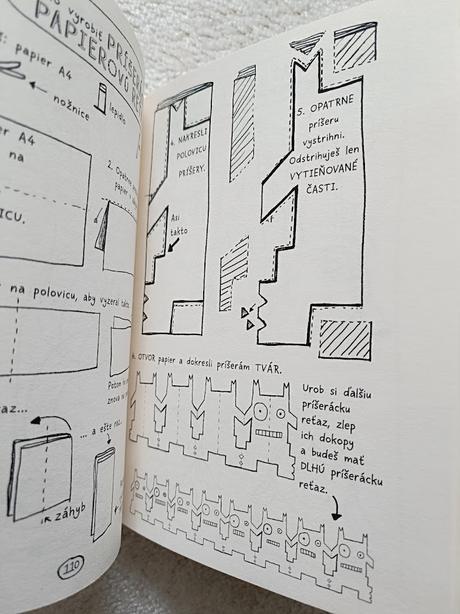 vyrobiť PRÍŠE
PAPIEROVÚ
papier A4
nožnice
lepidlo
papier A4
na
ICU.
2. Opatrne
papier
na polovicu, aby vyzeral takto.
Potom
znova
az...
... a ešte raz.
záhyb
110
4. NAKRESLI
POLOVICU
PRÍŠERY.
Asi
takto
5. OPATRNE
príšeru
vystrihni.
Odstrihuješ len
VYTIEŇOVANÉ
ČASTI.
6. OTVOR papier a dokresli príšerám TVÁR.
Urob si ďalšiu
príšerácku
reťaz, zlep
ich dokopy
a budeš mať
DLHÚ príšerácku
reťaz.